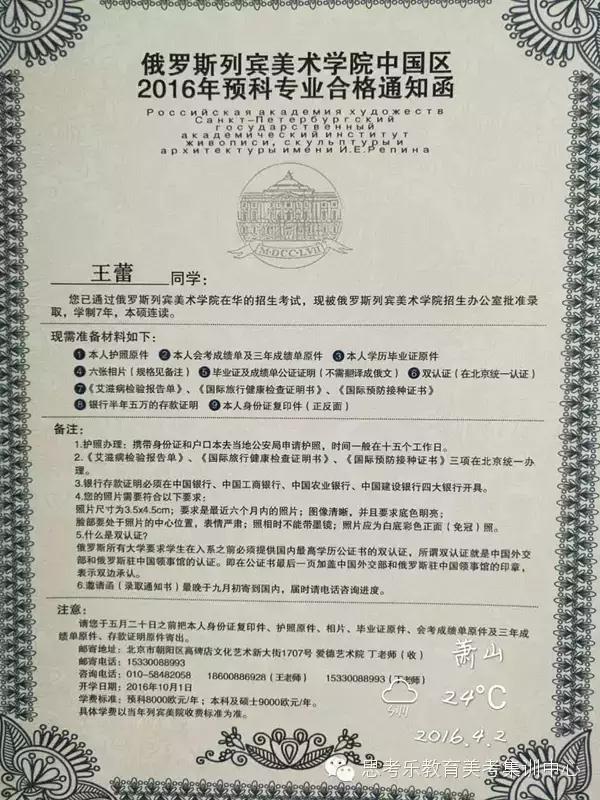 俄罗斯列宾美术学院中国区
2016年预科专业合格通知函
Российская академия художеств
Санкт-Петербургский
государственный
академический институт
живописи, скульптуры и
архитектуры имени И.Е.Репина
M·DCC·LVII
王蕾 同学：
您已通过俄罗斯列宾美术学院在华的招生考试，现被俄罗斯列宾美术学院招生办公室批准录
取，学制7年，本硕连读。
现需准备材料如下：
❶ 本人护照原件 ❷ 本人会考成绩单及三年成绩单原件 ❸ 本人学历毕业证原件
❹ 六张相片（规格见备注） ❺ 毕业证及成绩单公证证明（不需翻译成俄文） ❻ 双认证（在北京统一认证）
❼《艾滋病检验报告单》、《国际旅行健康检查证明书》、《国际预防接种证书》
❽ 银行半年五万的存款证明 ❾ 本人身份证复印件（正反面）
备注：
1.护照办理：携带身份证和户口本去当地公安局申请护照，时间一般在十五个工作日。
2.《艾滋病检验报告单》、《国际旅行健康检查证明书》、《国际预防接种证书》三项在北京统一办
理。
3.银行存款证明必须在中国银行、中国工商银行、中国农业银行、中国建设银行四大银行开具。
4.您的照片需要符合以下要求：
照片尺寸为3.5x4.5cm；要求是最近六个月内的照片；图像清晰，并且要求底色明亮；
脸部要处于照片的中心位置，表情严肃；照相时不能带墨镜；照片应为白底彩色正面（免冠）照。
5.什么是双认证？
俄罗斯所有大学要求学生在入系之前必须提供国内最高学历公证书的双认证，所谓双认证就是中国外交
部和俄罗斯驻中国领事馆的认证。即在公证书最后一页加盖中国外交部和俄罗斯驻中国领事馆的印章，
表示双边承认。
6.邀请函（录取通知书）最晚于九月初寄到国内，届时请电话咨询进度。
注意：
请您于五月二十日之前把本人身份证复印件、护照原件、相片、毕业证原件、会考成绩单原件及三年成
绩单原件、存款证明原件寄出。
邮寄地址：北京市朝阳区高碑店文化艺术新大街1707号 爱德艺术院 丁老师（收）
邮寄电话：15330088993
咨询电话：010-58482058 18600886928（王老师） 15330088993（丁老师）
开学日期：2016年10月1日
学费标准：预科8000欧元/年；本科及硕士9000欧元/年。
具体学费以当年列宾美院收费标准为准。
萧山
24°C
2016.4.2
思考乐教育美考集训中心